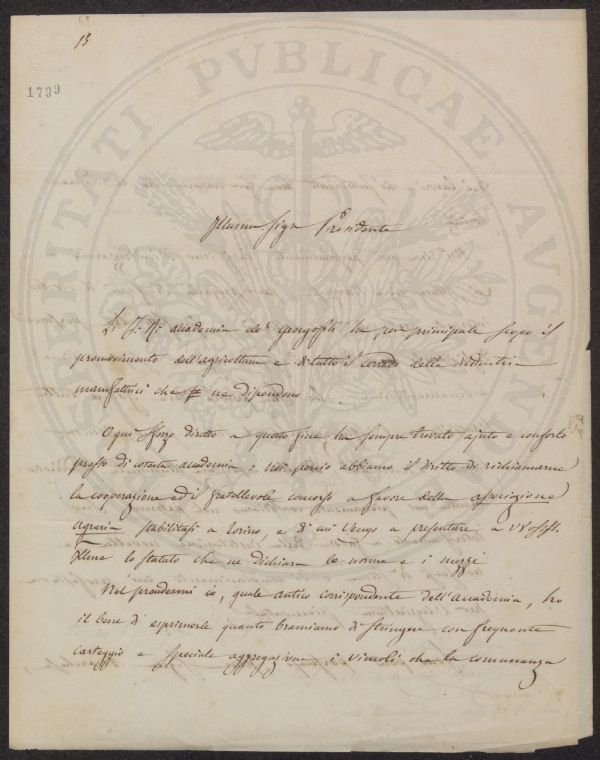 13
1799
PROSPERITATI PVBLICAE AVGENDAE
Illusmo Sigr Presidente
L' I. R. accademia de' georgofili ha per principale scopo il
promovimento dell'agricoltura e di tutto il corredo della industria
manufattrici che ne dipendono.
Ogni sforzo diretto a questo fine ha sempre trovato ajuto e conforto
presso di cotesta accademia; noi perciò abbiamo il diritto di richiamarne
la cooperazione ed il fratellevole concorso a favore della associazione
agraria stabilitasi a Torino, e di cui vengo a presentare a
Illma lo statuto che ne dichiara le norme e i mezzi
Nel prendermi io, quale antico corrispondente dell'Accademia, ho
il bene di esprimerle quanto bramiamo di stringere con frequente
carteggio e speciale aggregazione i vincoli che la comunanza